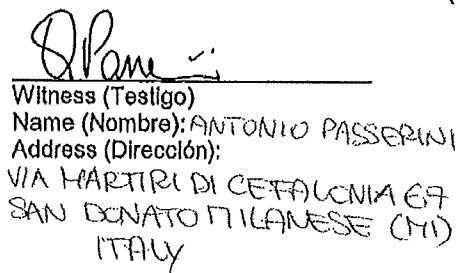 Witness (Testigo)
Name (Nombre): ANTONIO PASSERINI
Address (Dirección):
VIA MARTIRI DI CEFALONIA 67
SAN DONATO MILANESE (MI)
ITALY